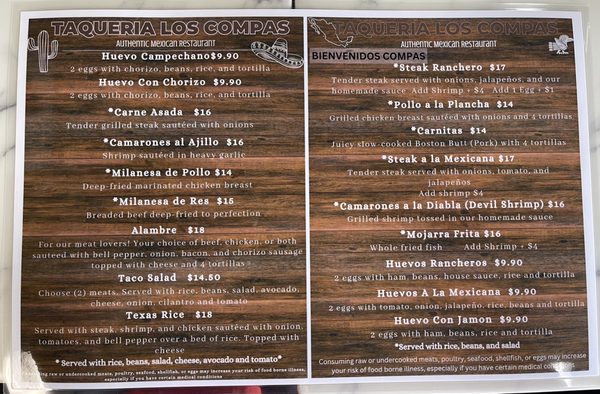 TAQUERIA LOS COMPAS
AUTHENTIC MEXICAN RESTAURANT
Huevo Campechano$9.90
2 eggs with chorizo, beans, rice, and tortilla
Huevo Con Chorizo $9.90
2 eggs with chorizo, beans, rice, and tortilla
*Carne Asada $16
Tender grilled steak sautéed with onions
*Camarones al Ajillo $16
Shrimp sautéed in heavy garlic
*Milanesa de Pollo $14
Deep-fried marinated chicken breast
*Milanesa de Res $15
Breaded beef deep-fried to perfection
Alambre $18
For our meat lovers! Your choice of beef, chicken, or both
sauteed with bell pepper, onion, bacon, and chorizo sausage
topped with cheese and 4 tortillas
Taco Salad $14.50
Choose (2) meats. Served with rice, beans, salad, avocado,
cheese, onion, cilantro and tomato
Texas Rice $18
Served with steak, shrimp, and chicken sautéed with onion,
tomatoes, and bell pepper over a bed of rice. Topped with
cheese
*Served with rice, beans, salad, cheese, avocado and tomato*
Consuming raw or undercooked meats, poultry, seafood, shellfish, or eggs may increase your risk of food borne illness,
especially if you have certain medical conditions
TAQUERIA LOS COMPAS
AUTHENTIC MEXICAN RESTAURANT
BIENVENIDOS COMPAS
*Steak Ranchero $17
Tender steak served with onions, jalapeños, and our
homemade sauce Add Shrimp + $4 Add 1 Egg + $1
*Pollo a la Plancha $14
Grilled chicken breast sautéed with onions and 4 tortillas
*Carnitas $14
Juicy slow-cooked Boston Butt (Pork) with 4 tortillas
*Steak a la Mexicana $17
Tender steak served with onions, tomato, and
jalapeños
Add shrimp $4
*Camarones a la Diabla (Devil Shrimp) $16
Grilled shrimp tossed in our homemade sauce
*Mojarra Frita $16
Whole fried fish Add Shrimp + $4
Huevos Rancheros $9.90
2 eggs with ham, beans, house sauce, rice and tortilla
Huevos A La Mexicana $9.90
2 eggs with tomato, onion, jalapeño, rice, beans and tortilla
Huevo Con Jamon $9.90
2 eggs with ham, beans, rice and tortilla
*Served with rice, beans, and salad
Consuming raw or undercooked meats, poultry, seafood, shellfish, or eggs may increase
your risk of food borne illness, especially if you have certain medical conditions